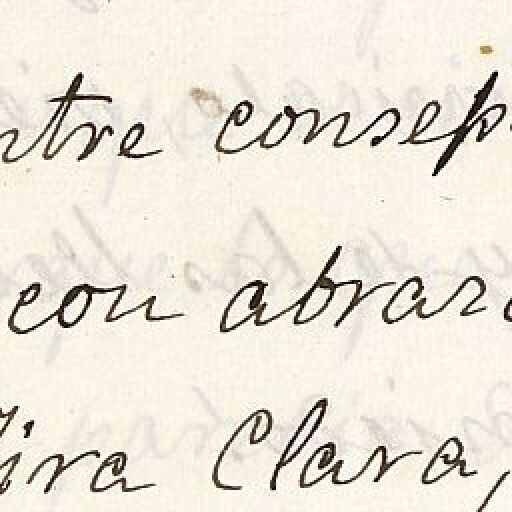 ntre consep
con abraza
ira Clara,